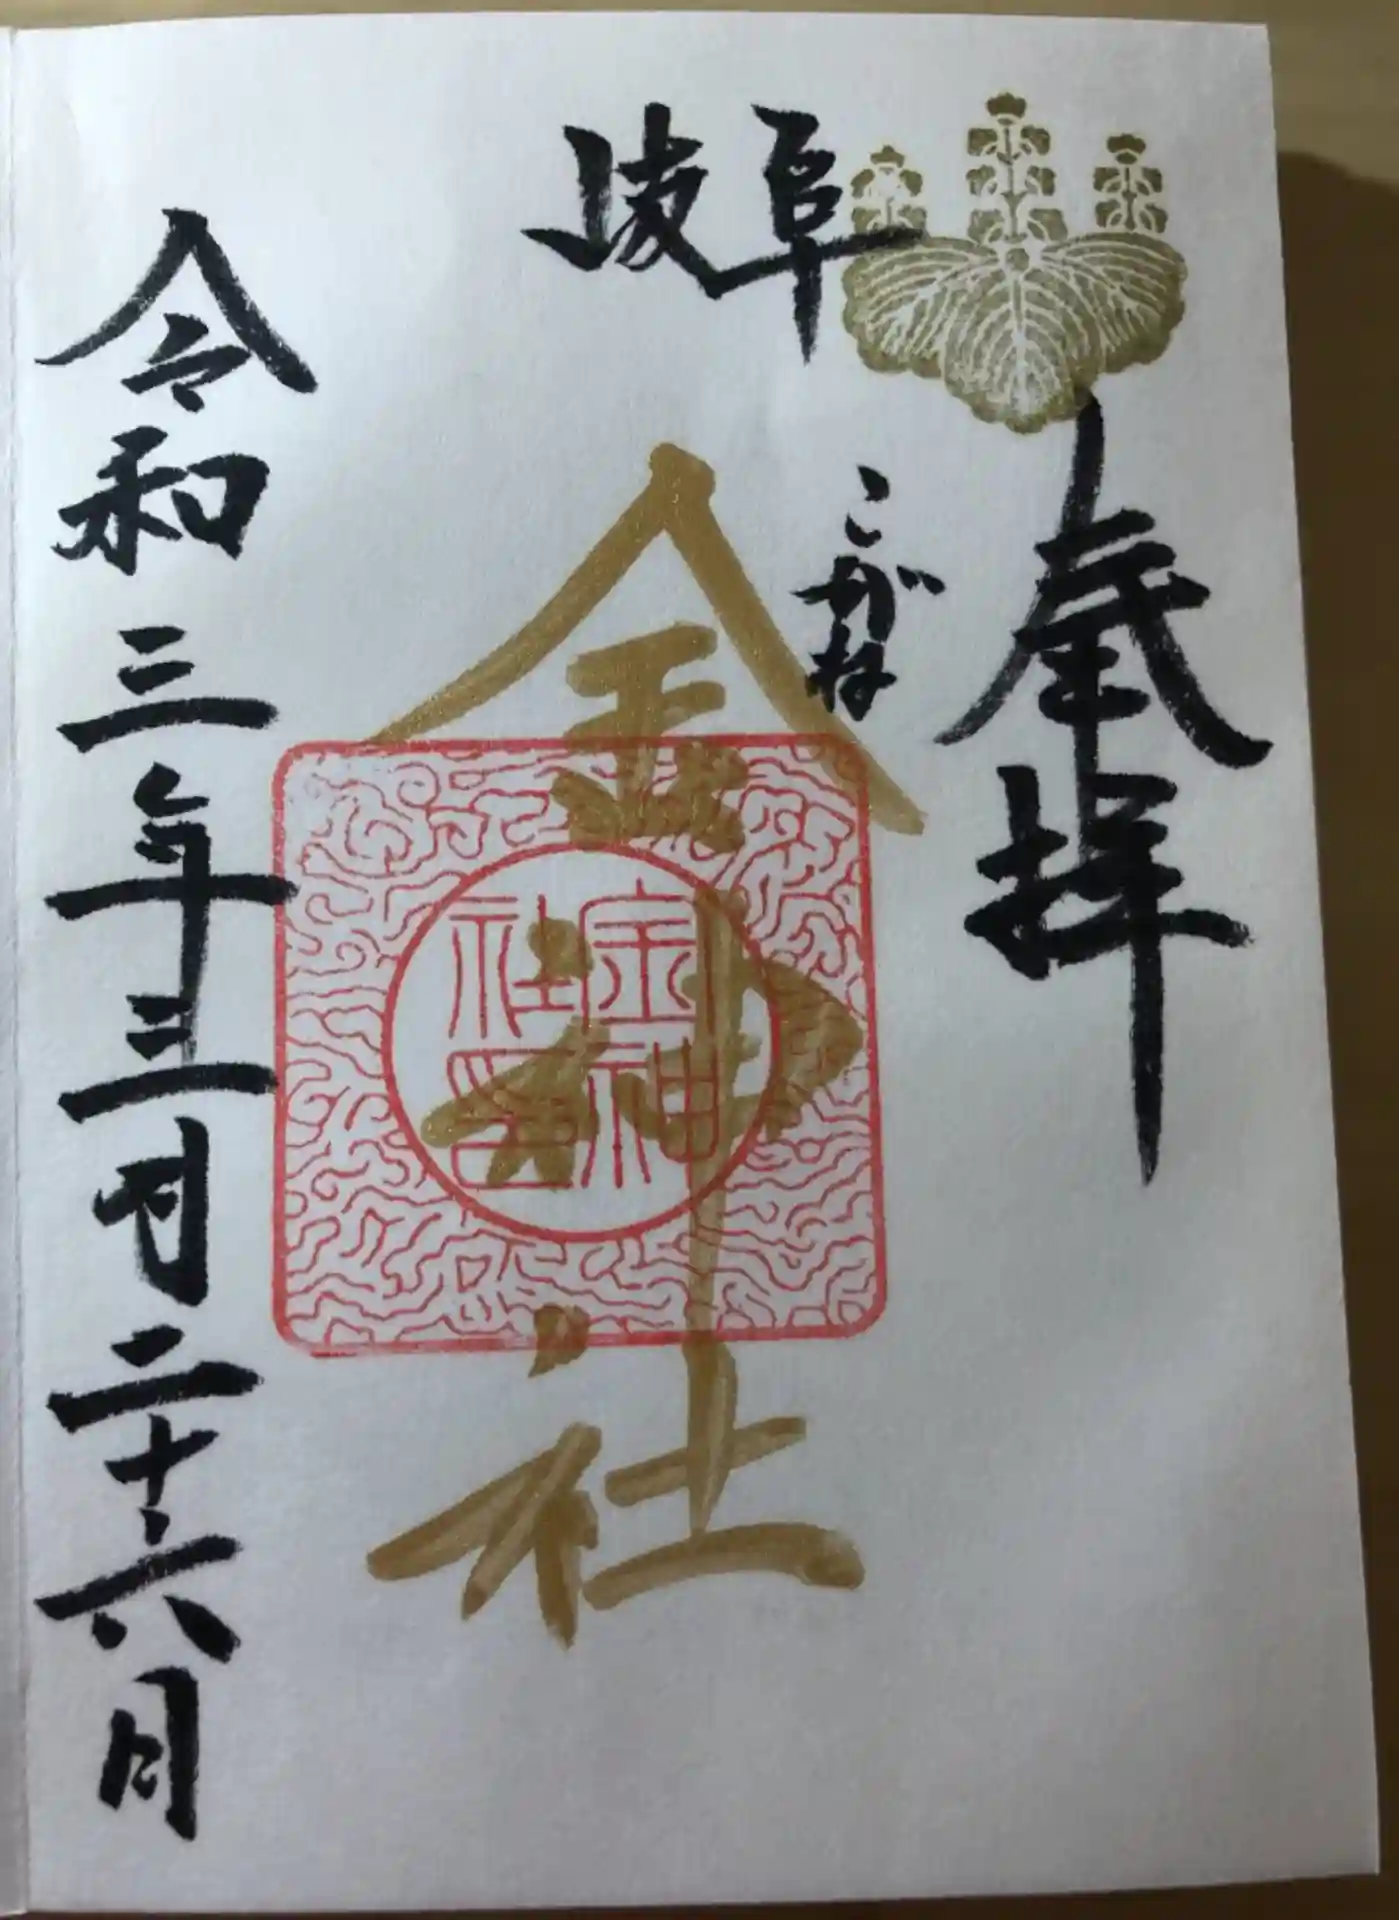 奉拝
岐阜
こがね
金神社
金神社印
令和三年三月二十六日